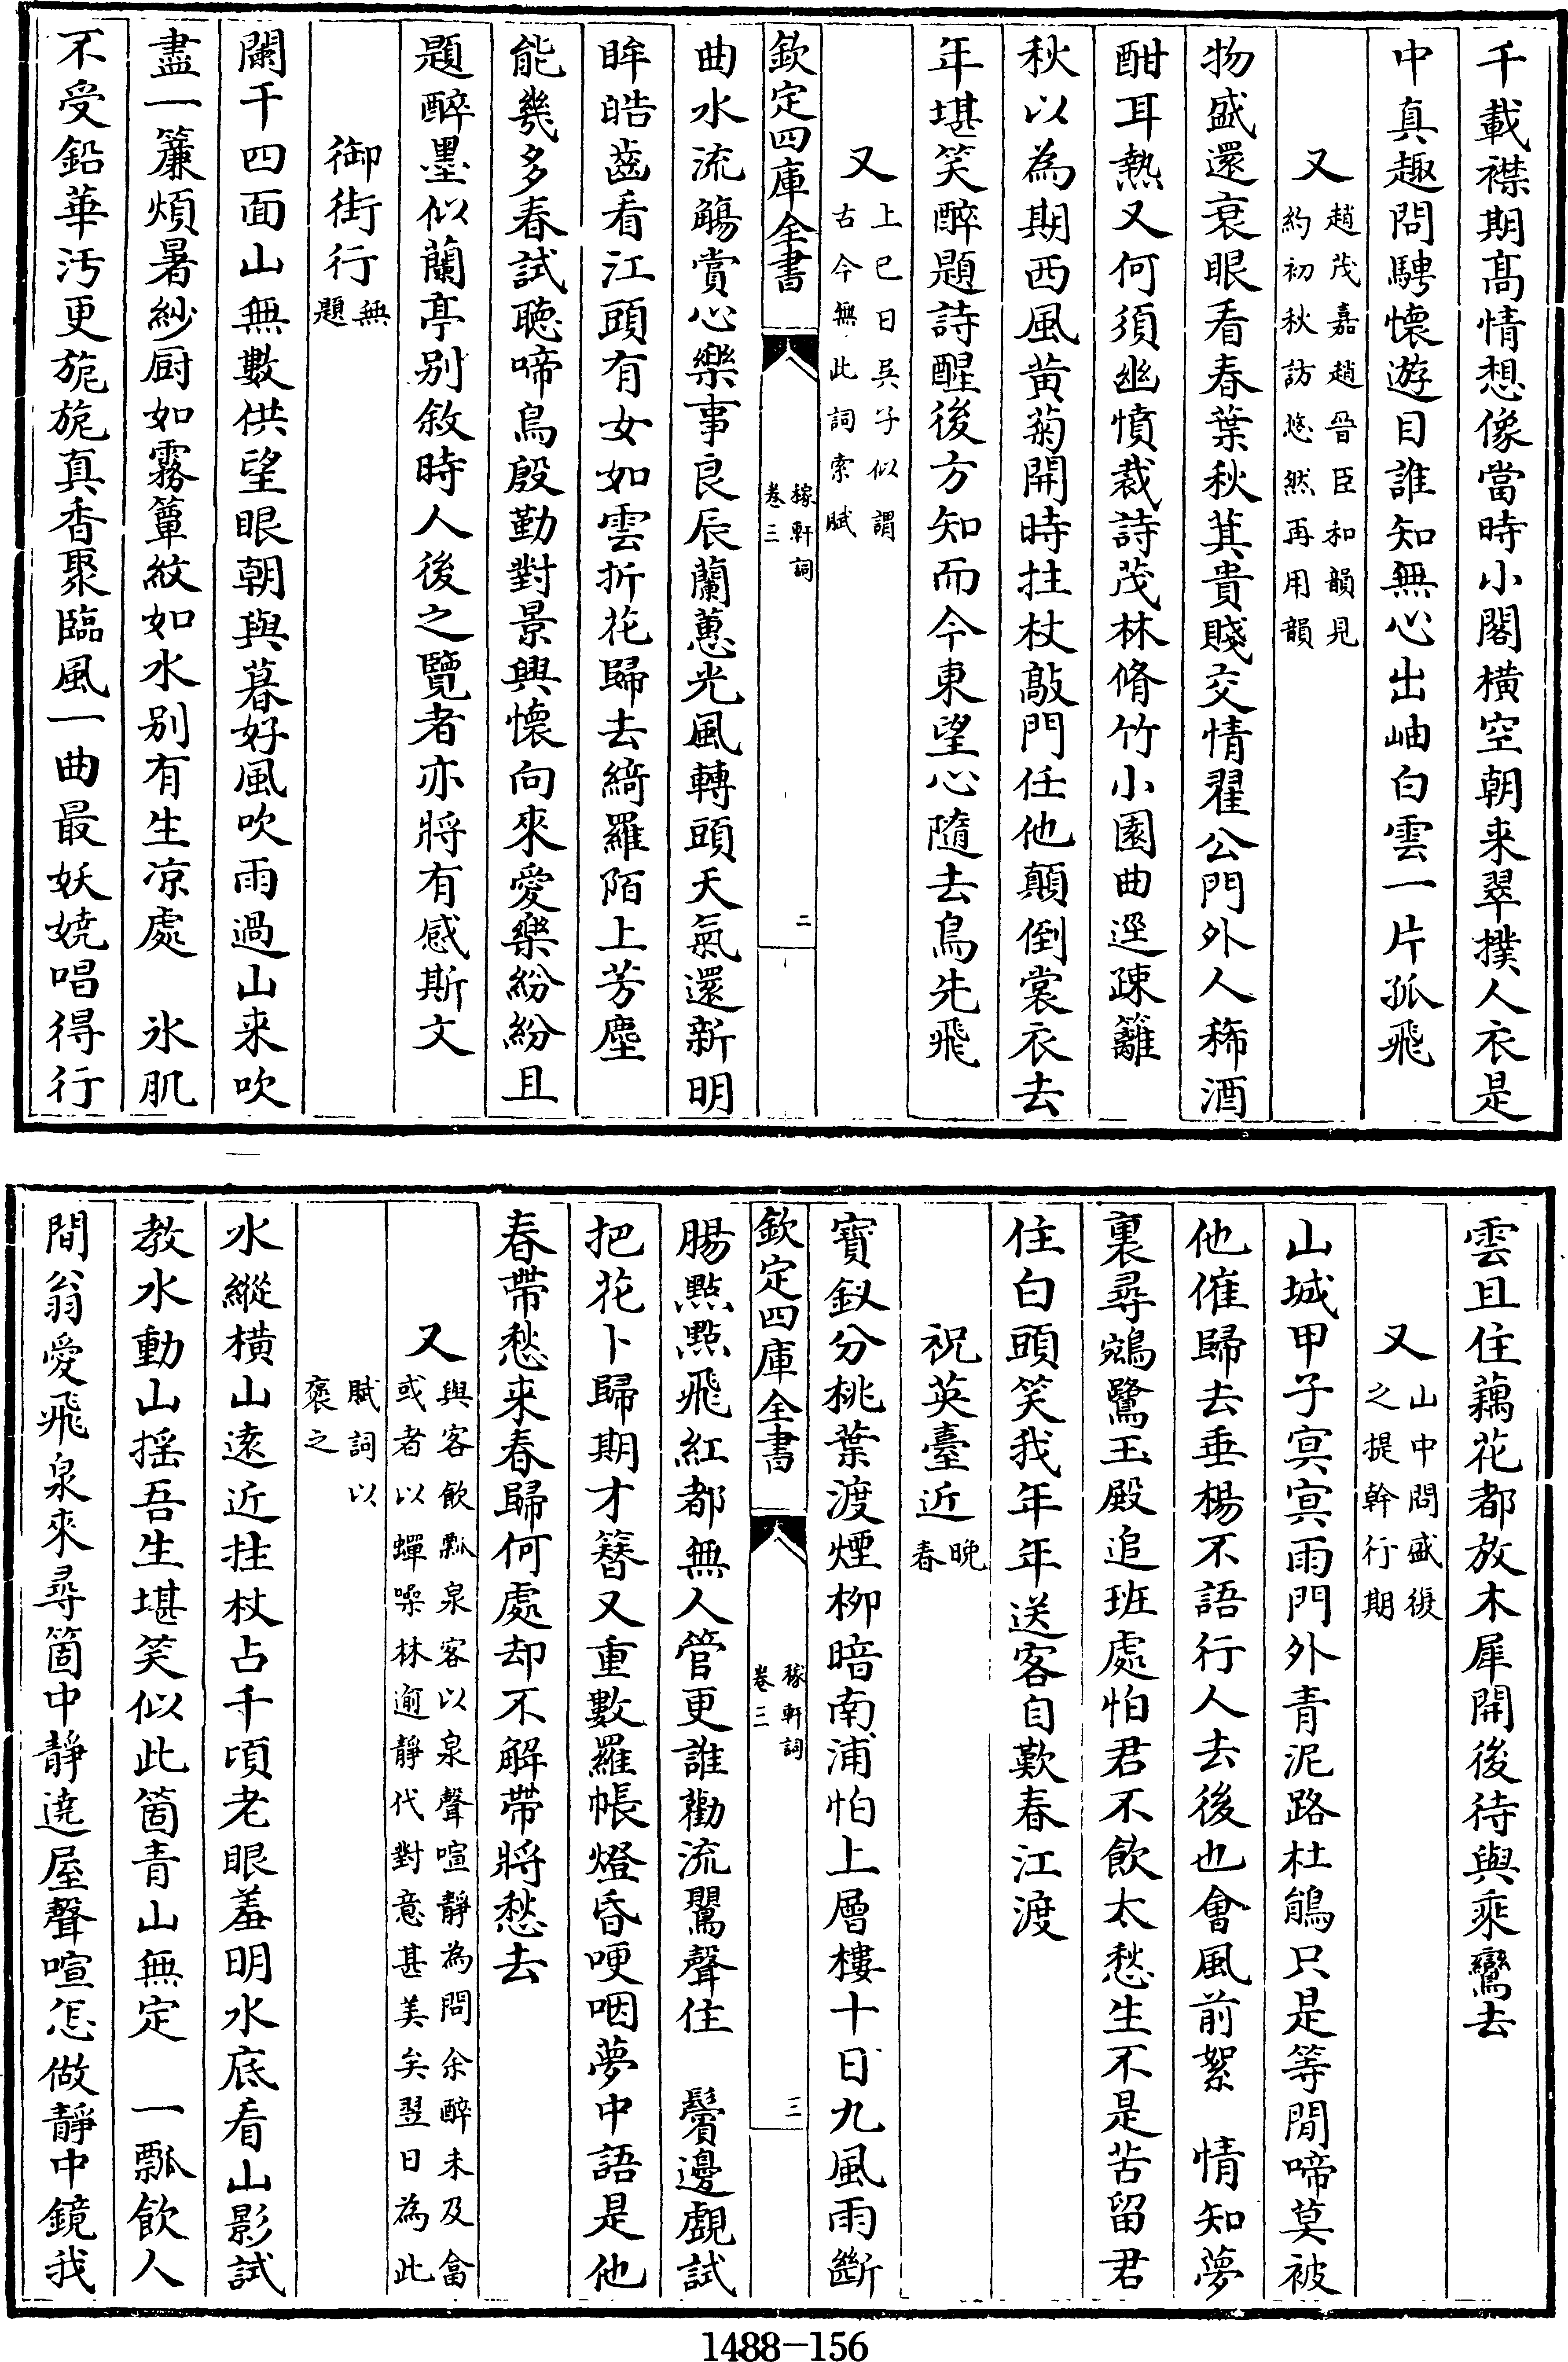 千載襟期髙情想像當時小閣橫空朝来翠撲人衣是
中真趣問騁懐遊目誰知無心出岫白雲一片孤飛
又趙茂嘉趙晉臣和韻見
約初秋訪悠然再用韻
物盛還衰眼看春葉秋萁貴賤交情翟公門外人稀酒
酣耳熱又何須幽憤裁詩茂林脩竹小園曲逕疎籬
秋以為期西風黄菊開時拄杖敲門任他顛倒裳衣去
年堪笑醉題詩醒後方知而今東望心隨去鳥先飛
又上巳日吳子似謂
古今無此詞索賦
欽定四庫全書
稼軒詞
卷三
二
曲水流觴賞心樂事良辰蘭蕙光風轉頭天氣還新明
眸皓齒看江頭有女如雲折花歸去綺羅陌上芳塵
能幾多春試聽啼鳥殷勤對景興懷向來愛樂紛紛且
題醉墨似蘭亭别敘時人後之覽者亦將有感斯文
御街行無
題
闌干四面山無數供望眼朝與暮好風吹雨過山来吹
盡一簾煩暑紗厨如霧簟紋如水别有生凉處 氷肌
不受鉛華汚更旎旎真香聚臨風一曲最妖嬈唱得行
雲且住藕花都放木犀開後待與乘鸞去
又山中問盛復
之提幹行期
山城甲子冥冥雨門外青泥路杜鵑只是等閒啼莫被
他催歸去垂楊不語行人去後也會風前絮 情知夢
裏尋鵷鷺玉殿追班處怕君不飲太愁生不是苦留君
住白頭笑我年年送客自歎春江渡
祝英臺近晚
春
寶釵分桃葉渡煙柳暗南浦怕上層樓十日九風雨斷
欽定四庫全書
稼軒詞
卷三
三
腸點點飛紅都無人管更誰勸流鶯聲住 鬢邊覷試
把花卜歸期才簪又重數羅帳燈昏哽咽夢中語是他
春帶愁来春歸何處却不解帶將愁去
又與客飲瓢泉客以泉聲喧靜為問余醉未及畣
或者以蟬噪林逾靜代對意甚美矣翌日為此
賦詞以
褒之
水縱橫山遠近拄杖占千頃老眼羞明水底看山影試
教水動山揺吾生堪笑似此箇青山無定 一瓢飲人
間翁愛飛泉來尋箇中靜遶屋聲喧怎做靜中鏡我
1488-156